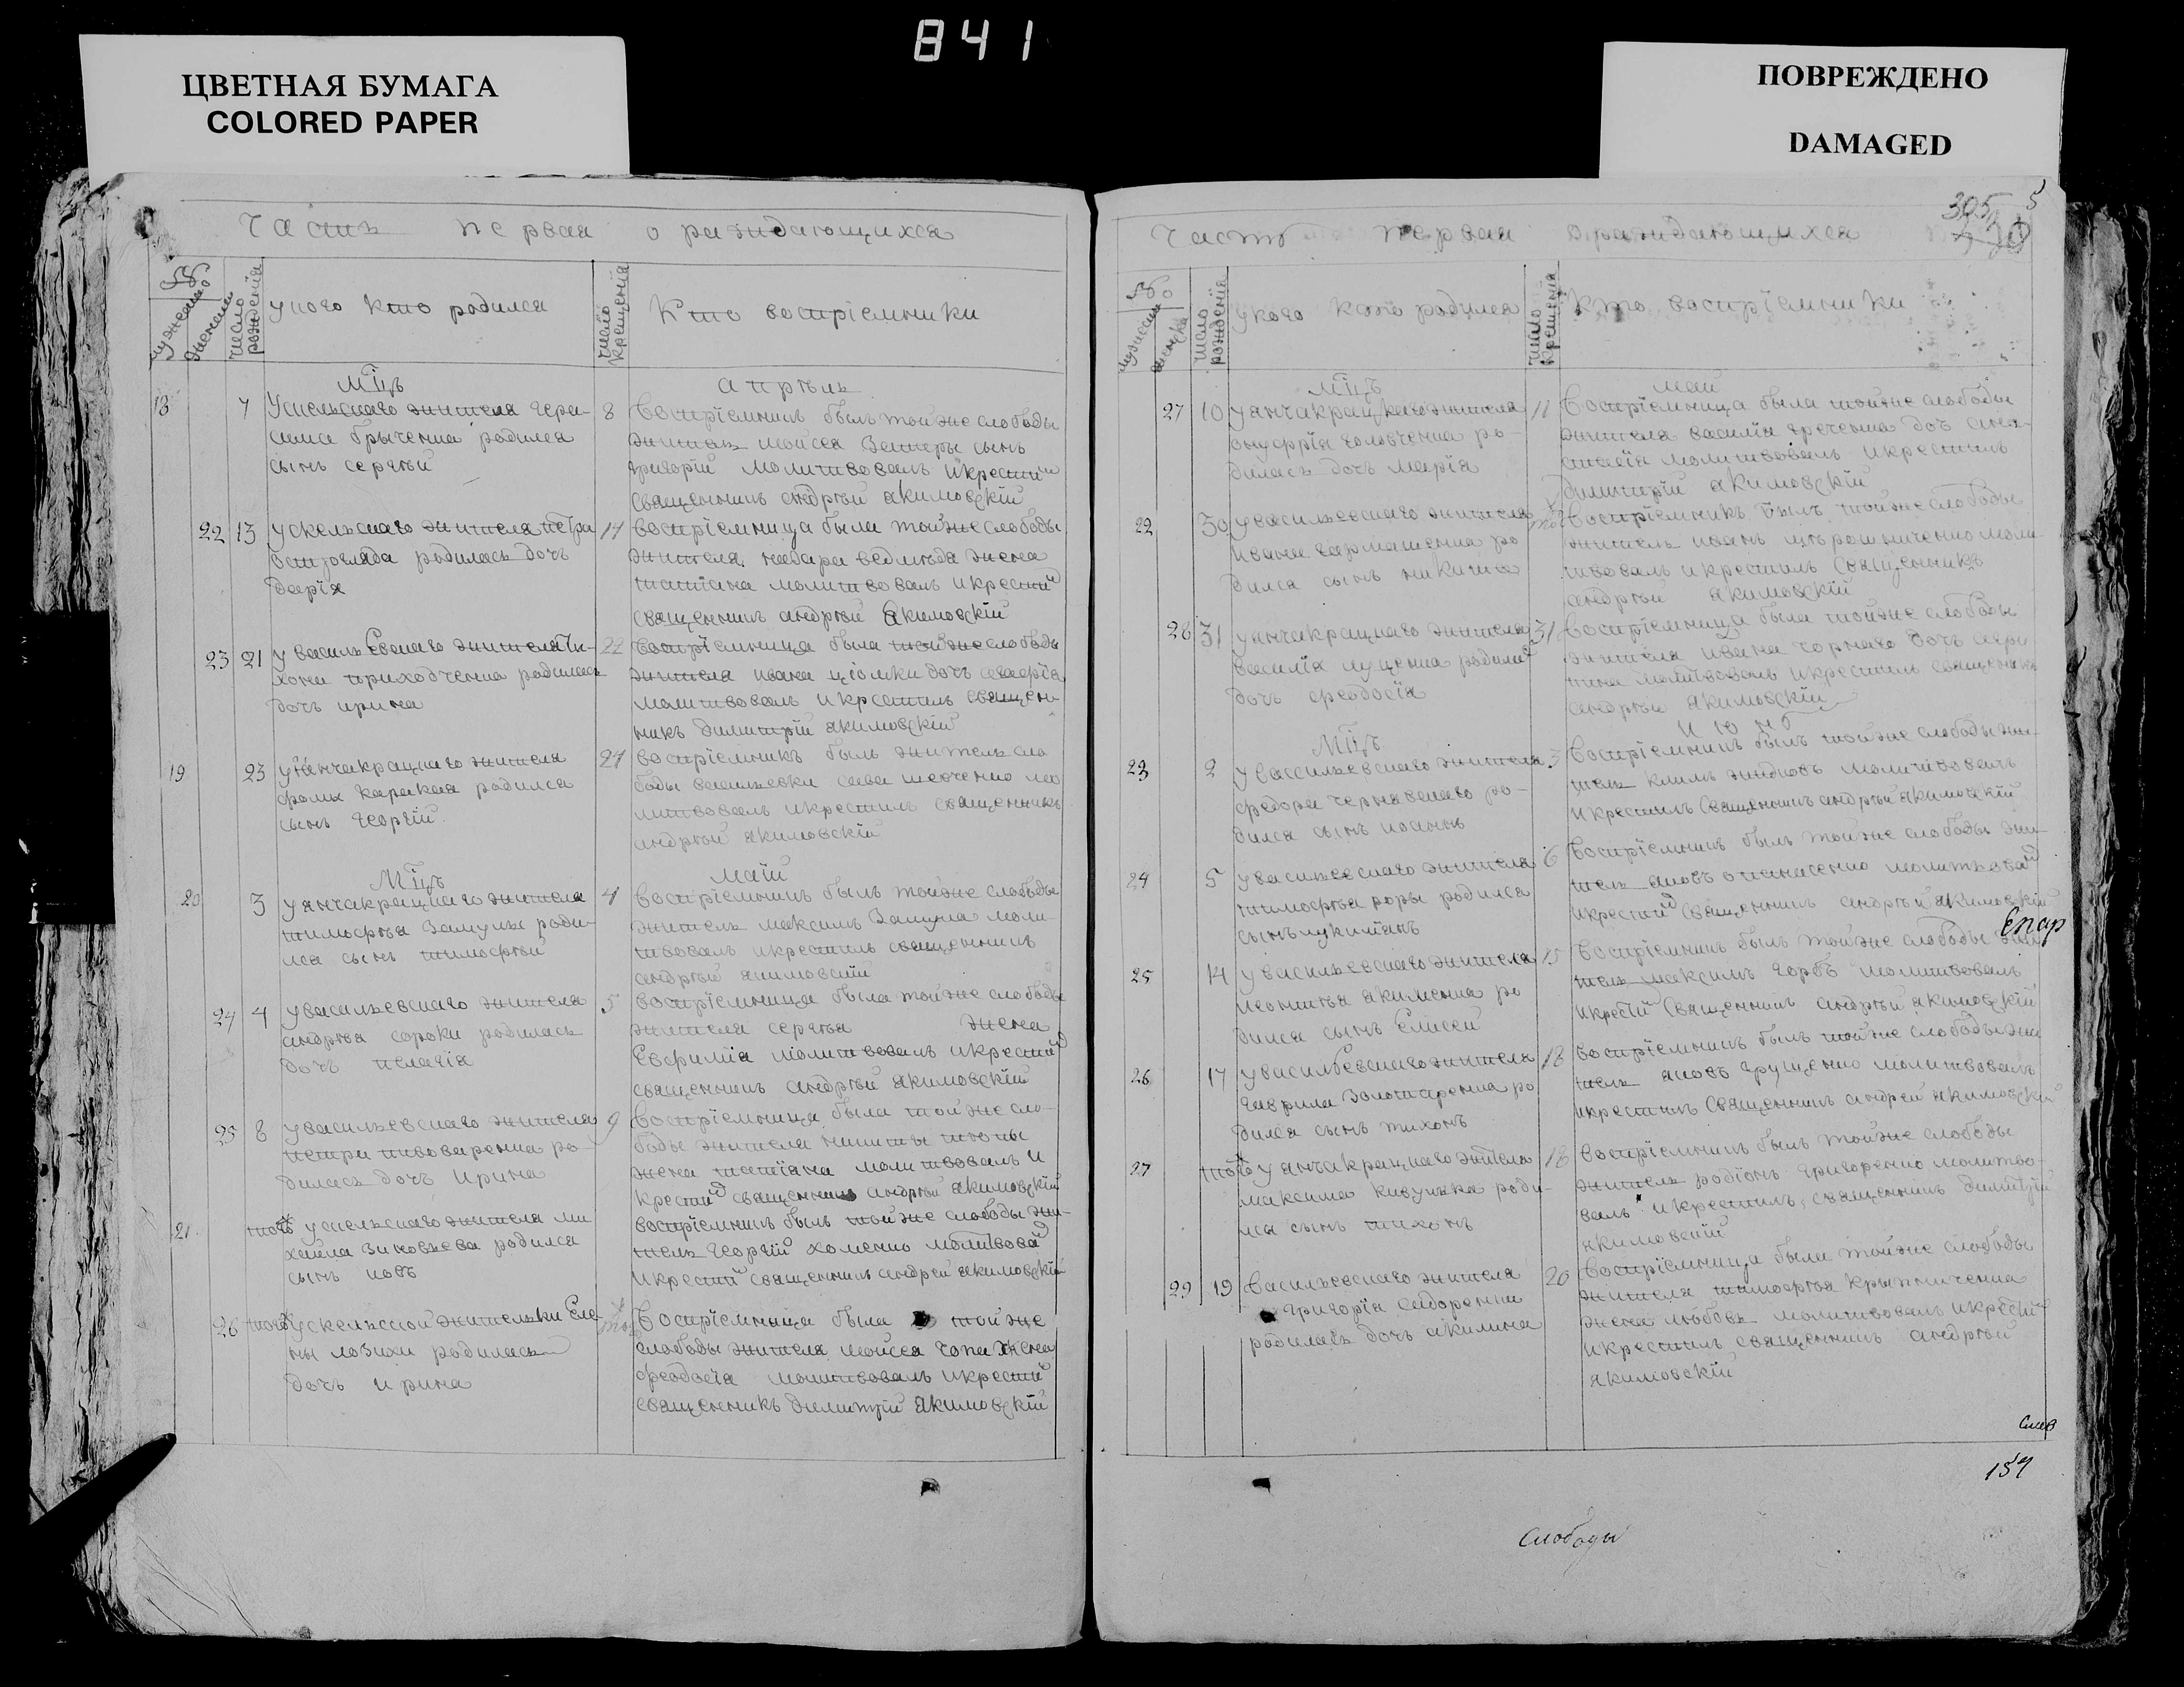 841
ЦВЕТНАЯ БУМАГА
COLORED PAPER
ПОВРЕЖДЕНО
DAMAGED
часть первая о раждающихся
число рожденія
у кого кто родился
число крещенія
Кто воспріемники
мцъ апрѣль
18 7 8
Ускельскаго жителя гера-
сима брыченка родился
сынъ сергѣй
воспріемникъ былъ тойже слободы
житель мойсея сынъ
григорій молитвовалъ и крестил
священникъ андрѣй якимовскій
22 13 14
ускельскаго жителя петра
родилась дочь
дарія
воспріемница была тойже слободы
жителя ведмѣдя жена
татіана молитвовалъ и крестил
священникъ андрѣй якимовскій
23 21 22
у васильевскаго жителя ти-
хона приходченка родилась
дочь ирина
воспріемница была тойже слободы
жителя ивана дочь
молитвовалъ и крестилъ священ-
никъ димитрій якимовскій
19 23 24
у янчакрацкаго жителя
фомы каракая родился
сынъ георгій
воспріемникъ былъ житель сло
боды васильевки сава шевченко мо
литвовалъ и крестилъ священникъ
андрѣй якимовскій
мцъ маій
20 3 4
у янчакрацкаго жителя
тимофѣя замулы роди-
лся сынъ тимофѣй
воспріемникъ былъ тойже слободы
житель максимъ замула моли-
твовалъ и крестилъ священникъ
андрѣй якимовскій
24 4 5
у васильевскаго жителя
андрѣя сороки родилась
дочь пелагія
воспріемница была тойже слободы
жителя сергѣя жена
Евфимія молитвовалъ и крестил
священникъ андрѣй якимовскій
25 8 9
у васильевскаго жителя
петра пивоваренка ро-
дилась дочь ирина
воспріемница была тойже сло-
боды жителя никиты
жена татіана молитвовалъ и
крестил священникъ андрѣй якимовскій
21 тогож
ускельскаго жителя ми
хаила зиновьева родился
сынъ іовъ
воспріемникъ былъ тойже слободы жи-
тель георгій хоменко молитвовал
и крестил священникъ андрей якимовскій
26 тогож
ускельской жительки Еле
ны родилась
дочь ирина
воспріемница была тойже
слободы жителя мойсея жена
феодосія молитвовалъ и крестил
священникъ димитрій якимовскій
305
5
часть первая о раждающихся
число рожденія
у кого кто родился
число крещенія
кто воспріемники
мцъ май
27 10 11
у янчакрацкаго жителя
онуфрія головченка ро-
дилась дочь марія
воспріемница была тойже слободы
жителя василія дочь анас-
тасія молитвовалъ и крестилъ
димитрій якимовскій
22 30
у васильевскаго жителя
ивана гармашенка ро
дился сынъ никита
воспріемникъ былъ тойже слободы
житель иванъ моли
твовалъ и крестилъ священникъ
андрѣй якимовскій
28 31 31
у янчакрацкаго жителя
василія луценка родилас
дочь феодосія
воспріемница была тойже слободы
жителя ивана чорнаго дочь
молитвовалъ и крестилъ священникъ
андрѣй якимовскій
мцъ июнь
23 2 3
у васильевскаго жителя
федора чернявскаго ро-
дился сынъ иоаннъ
воспріемникъ былъ тойже слободы жи-
тель климъ жидковъ молитвовалъ
и крестилъ священникъ андрѣй якимовскій
24 5 6
у васильевскаго жителя
тимофѣя родился
сынъ лукіянъ
воспріемникъ былъ тойже слободы жи-
тель яковъ опанасенко молитвовал
и крестил священникъ андрѣй якимовскій
Епар
25 14 15
у васильевскаго жителя
леонтѣя якименка ро
дился сынъ Елисей
воспріемникъ былъ тойже слободы жи
тель максимъ горбъ молитвовалъ
и крестил священникъ андрѣй якимовскій
26 17 18
у васильевскаго жителя
гаврила золотаренка ро
дился сынъ тихонъ
воспріемникъ былъ тойже слободы жи
тель яковъ грущенко молитвовалъ
и крестилъ священникъ андрей якимовскій
27 тогож 18
у янчакрацкаго жителя
максима роди-
лся сынъ тихонъ
воспріемникъ былъ тойже слободы
житель родіонъ григоренко молитво-
валъ и крестилъ священникъ димитрій
якимовскій
29 19 20
васильевскаго жителя
григорія сидоренка
родилась дочь акилина
воспріемница была тойже слободы
жителя тимофѣя крыжниченка
жена любовь молитвовалъ и крестил
и крестилъ священникъ андрѣй
якимовскій
слободы